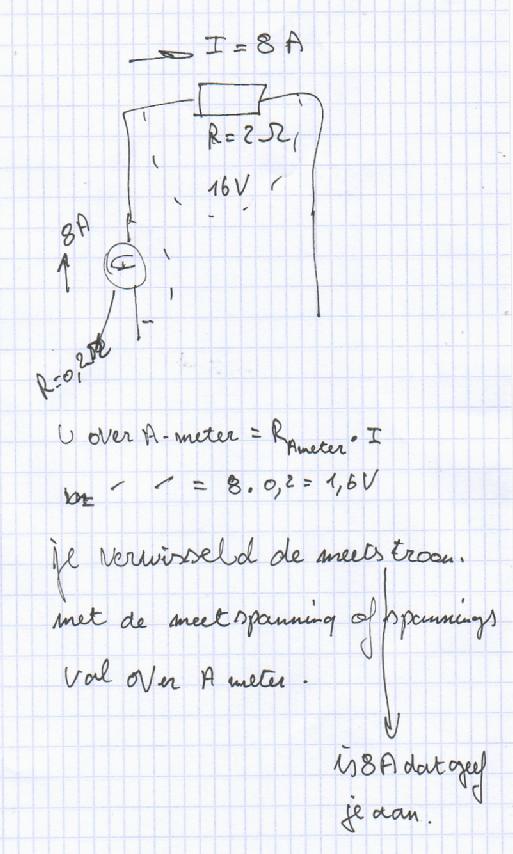 I = 8 A
R = 2 Ω
16V
8A
I
R=0,2Ω
U over A-meter = R Ameter · I
〃 〃 = 8 . 0,2 = 1,6V
je verwisseld de meetstroom.
met de meetspanning of spannings
val over A meter .
is 8A dat geef
je aan.